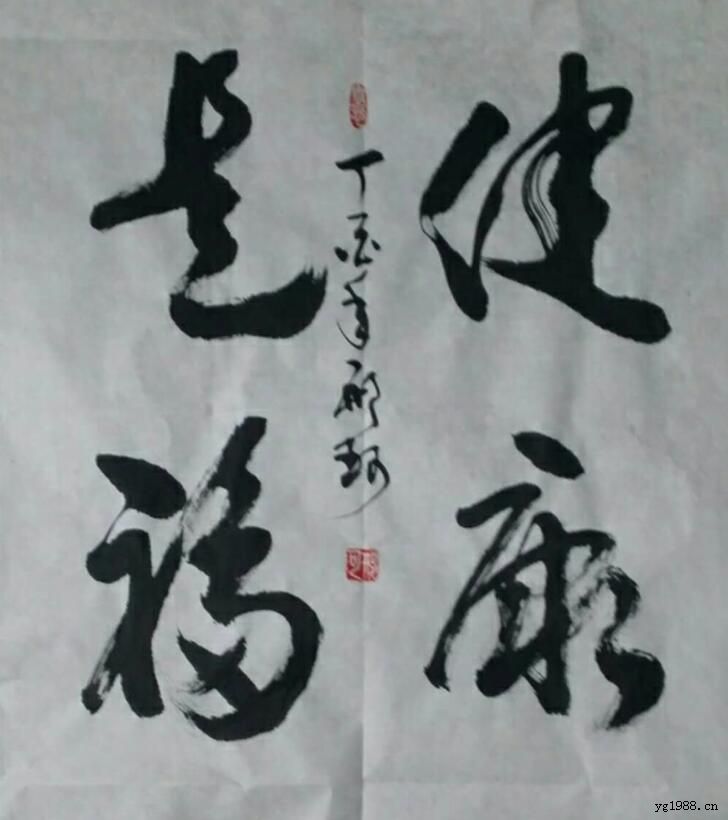 健康
是福
丁酉年
yg1988.cn